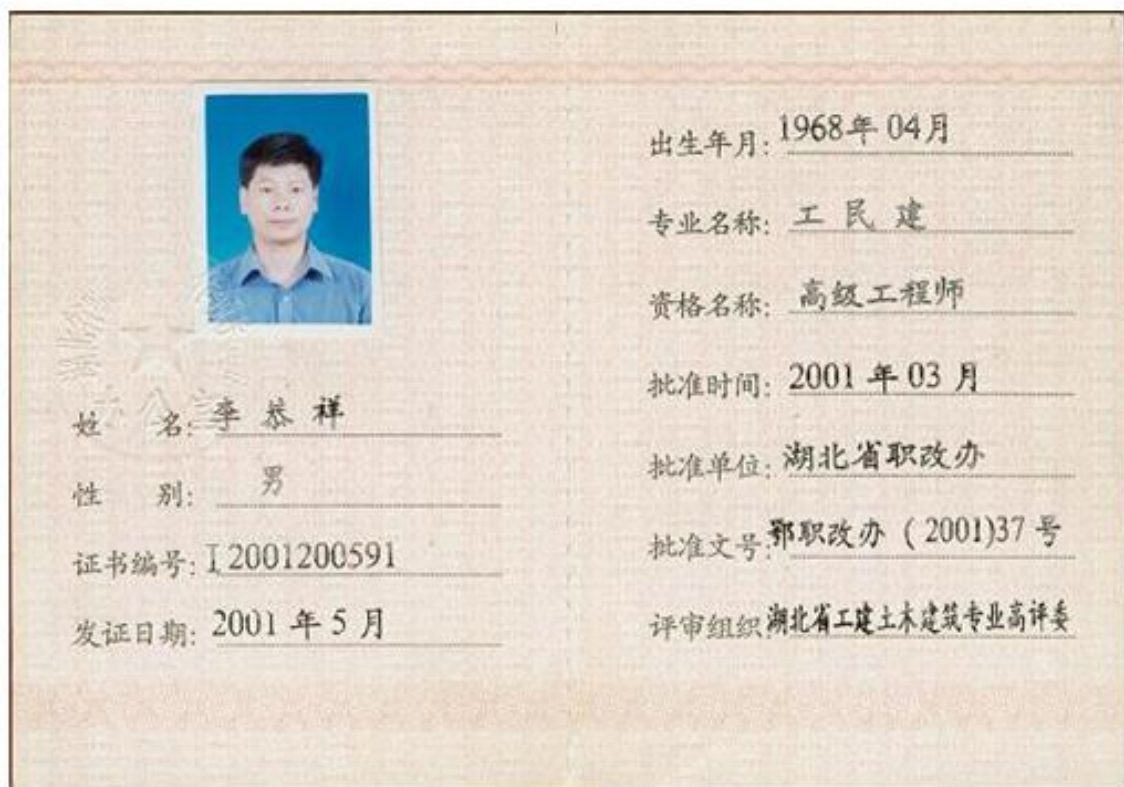 姓 名: 李恭祥
性 别: 男
证书编号: I 2001200591
发证日期: 2001 年 5 月
出生年月: 1968年 04月
专业名称: 工 民 建
资格名称: 高级工程师
批准时间: 2001 年 03 月
批准单位: 湖北省职改办
批准文号: 鄂职改办 ( 2001)37 号
评审组织: 湖北省工建土木建筑专业高评委